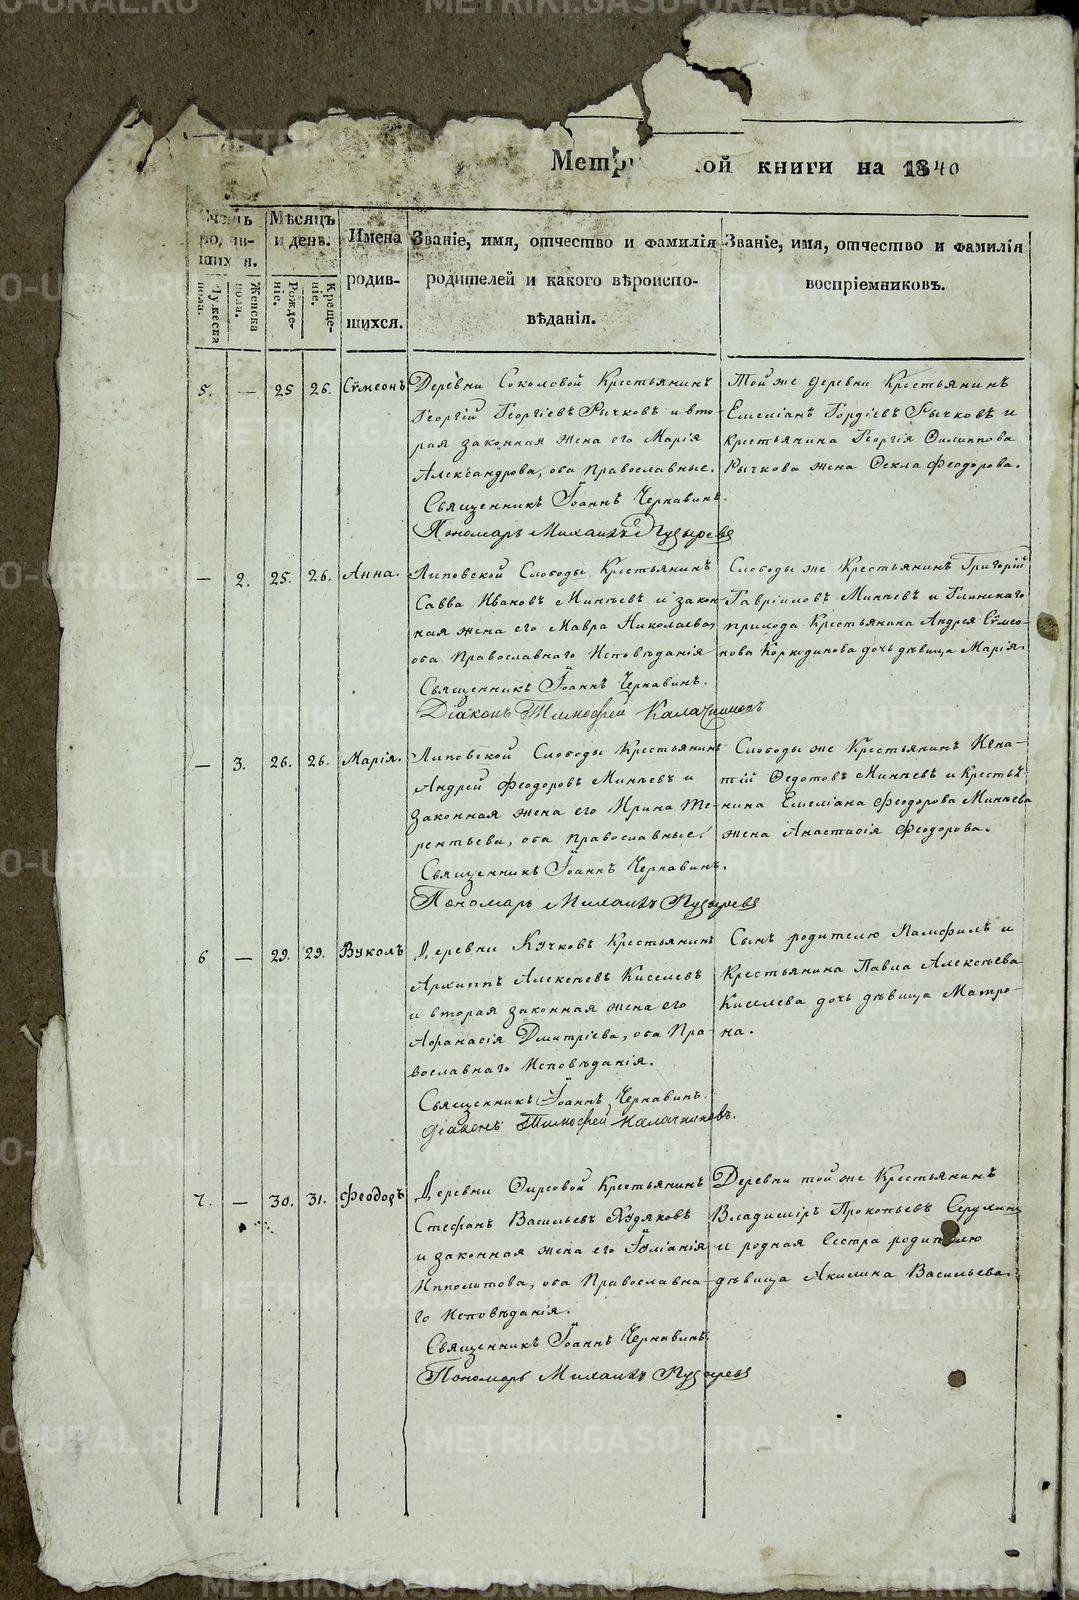 METRIKI.GASO-URAL.RU
ой книги на 1840
Мѣсяцъ и день.
Имена родившихся.
Званіе, имя, отчество и фамилія родителей и какого вѣроисповѣданія.
Званіе, имя, отчество и фамилія воспріемниковъ.
Женска пола.
Рожденіе.
Крещеніе.
5. — 25 26. Сѵмеонъ
Деревни Соколовой Крестьянинъ
Георгій Георгіевъ Рычковъ и вто-
рая законная жена его Марія
Александрова, оба Православные.
Священникъ Іоаннъ Чернавинъ.
Пономарь Михаилъ Пузыревъ
Той же деревни Крестьянинъ
Емеліанъ Гордіевъ Рычковъ и
Крестьянина Георгія Филиппова
Рычкова жена Ѳекла Феодорова.
— 2. 25. 26. Анна.
Липовской Слободы Крестьянинъ
Савва Ивановъ Минѣевъ и закон-
ная жена его Мавра Николаева,
оба Православнаго Исповѣданія
Священникъ Іоаннъ Чернавинъ.
Діаконъ Тимофей Калачниковъ
Слободы же Крестьянинъ Григорій
Гавріиловъ Минѣевъ и Глинскаго
прихода Крестьянина Андрея Сѵмео-
нова Коркодинова дочь дѣвица Марія.
— 3. 26. 26. Марія.
Липовской Слободы Крестьянинъ
Андрей Феодоровъ Минѣевъ и
законная жена его Ирина Те-
рентьева, оба Православные.
Священникъ Іоаннъ Чернавинъ.
Пономарь Михаилъ Пузыревъ
Слободы же Крестьянинъ Игна-
тій Ѳедотовъ Минѣевъ и Кресть-
нина Емеліана Феодорова Минѣева
жена Анастасія Феодорова.
6 — 29. 29. Вуколъ
Деревни Кучковъ Крестьянинъ
Архиппъ Алексѣевъ Киселевъ
и вторая законная жена его
Афанасія Дмитріева, оба Пра-
вославнаго Исповѣданія.
Священникъ Іоаннъ Чернавинъ.
Діаконъ Тимофей Калачниковъ.
Сынъ родителю Памфилъ и
Крестьянина Павла Алексѣева
Киселева дочь дѣвица Матро-
на.
7. — 30. 31. Феодоръ
Деревни Фирсовой Крестьянинъ
Стефанъ Васильевъ Худяковъ
и законная жена его Іуліанія
Ипполитова, оба Православна-
го Исповѣданія.
Священникъ Іоаннъ Чернавинъ.
Пономарь Михаилъ Пузыревъ
Деревни той же Крестьянинъ
Владиміръ Прокопьевъ
и родная Сестра родителю
дѣвица Акилина Васильева.